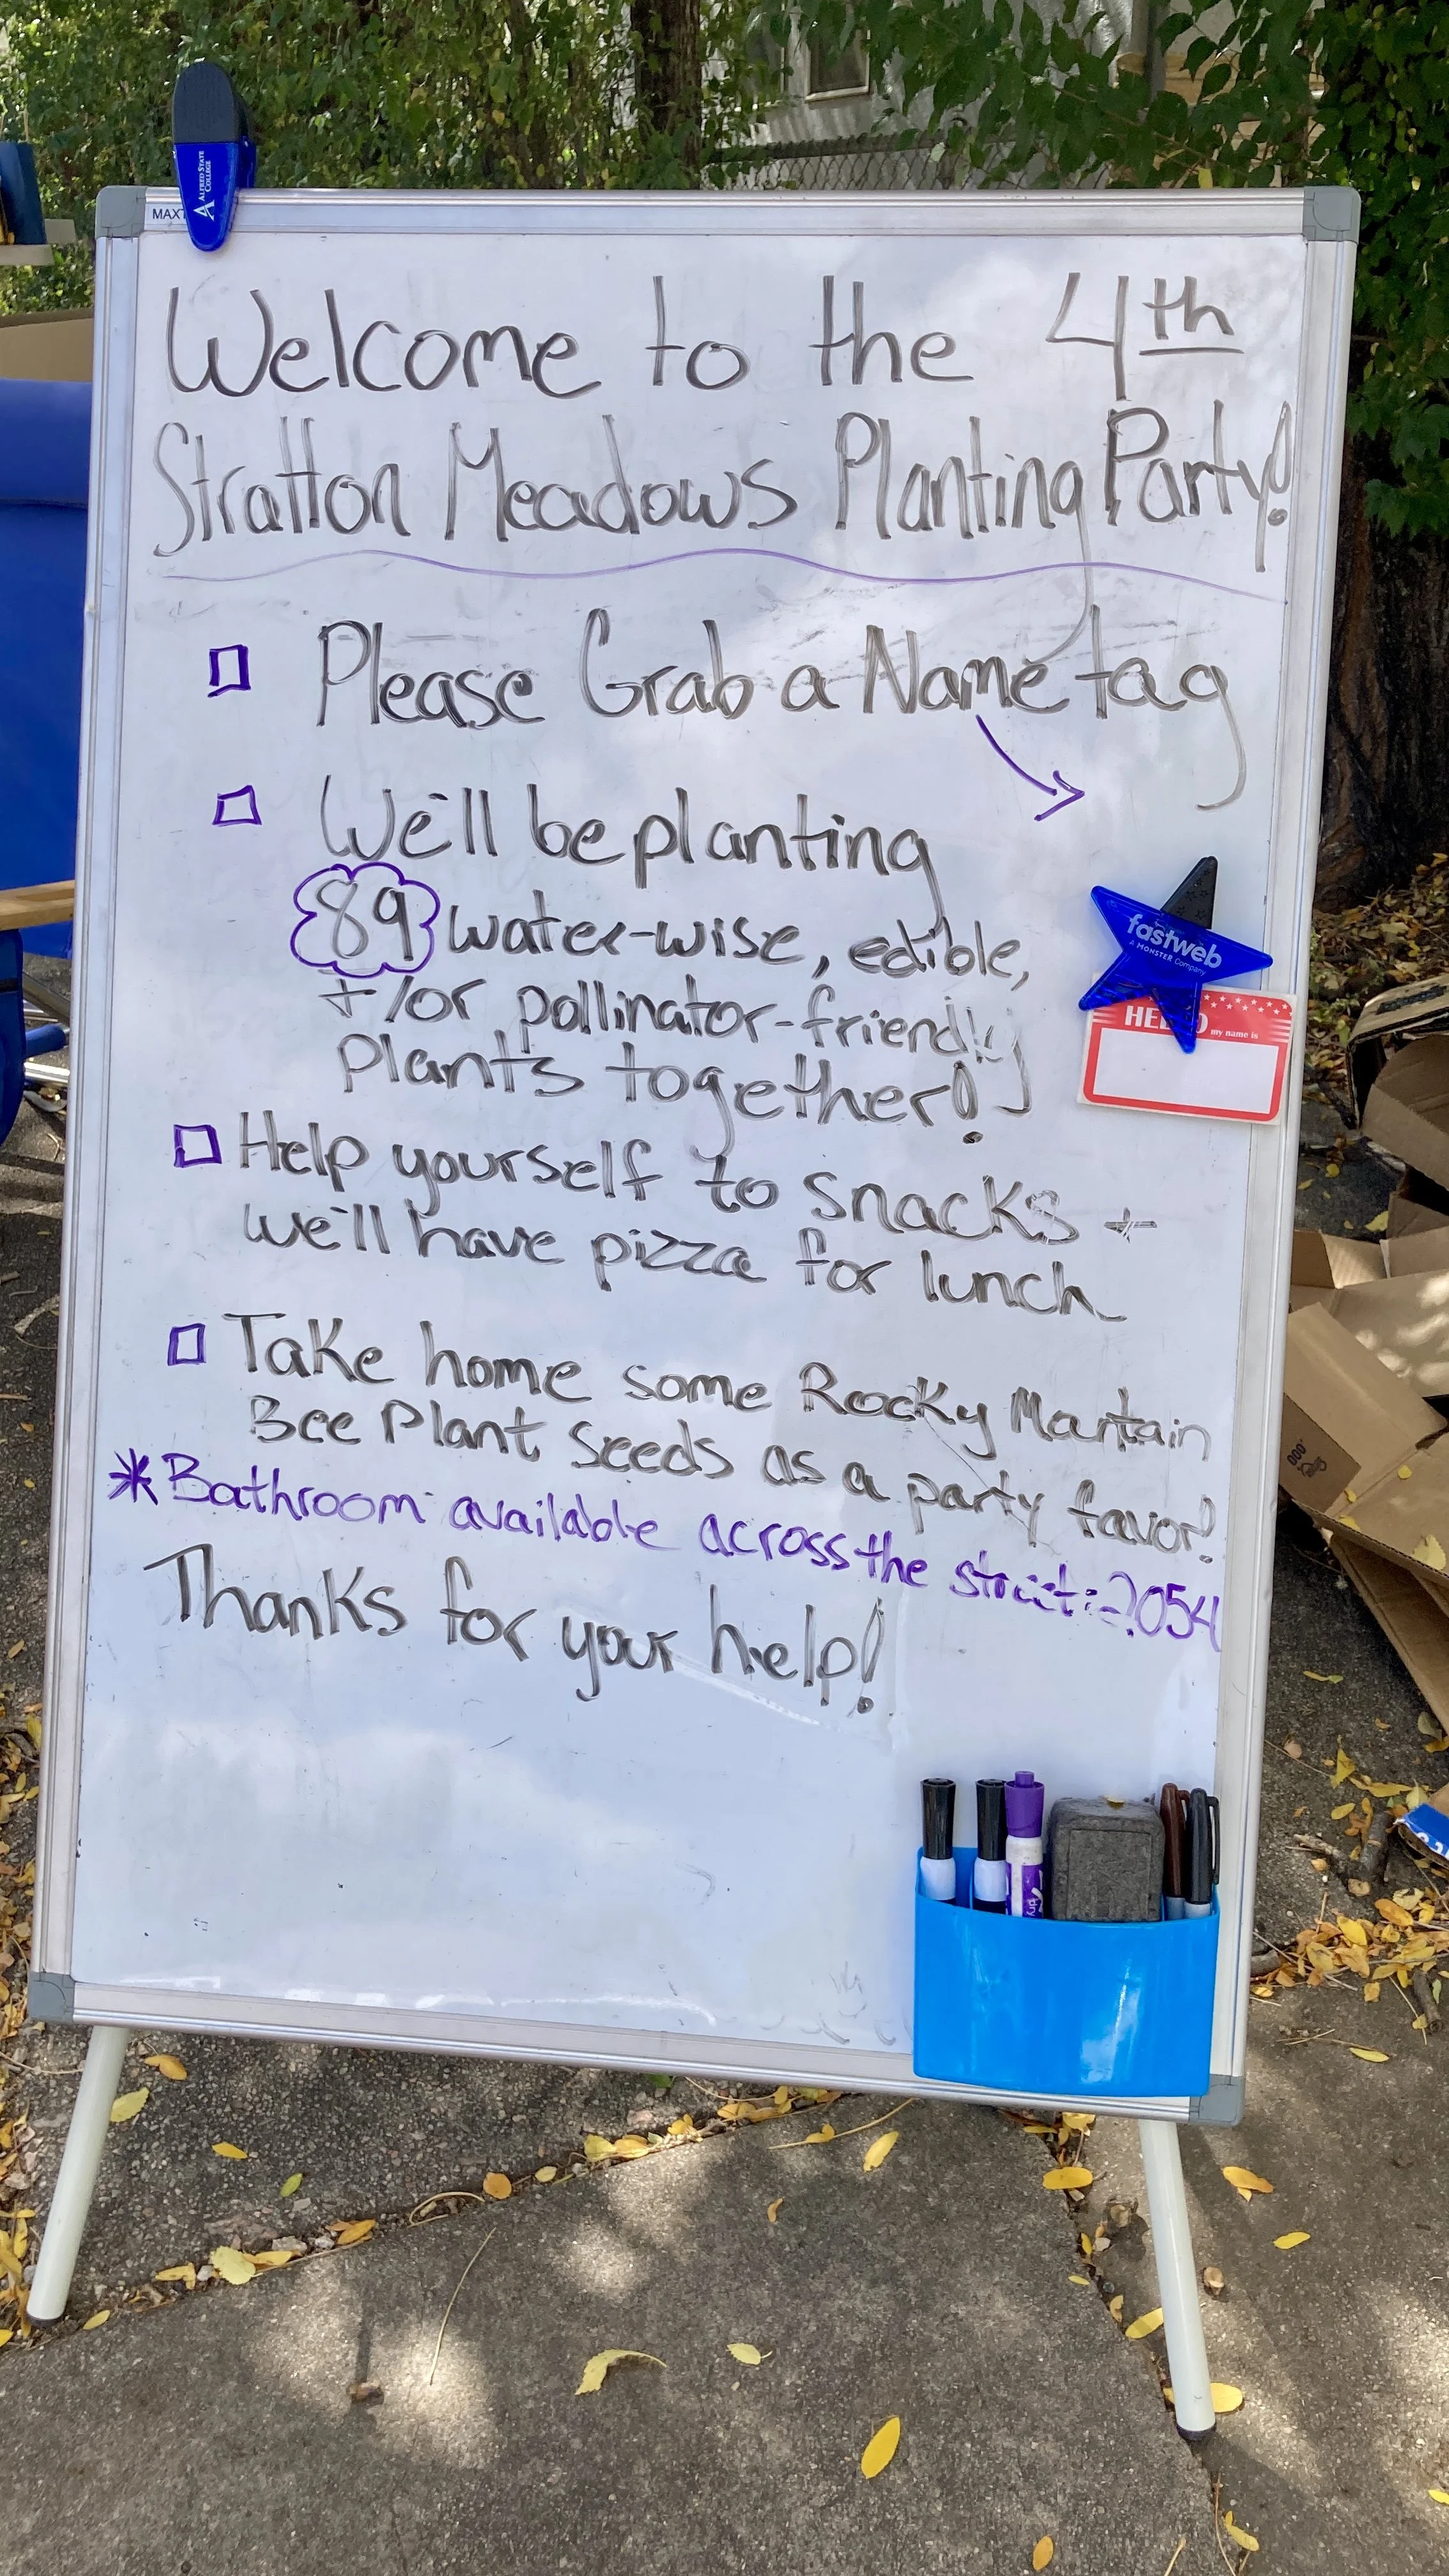 MAXT
ALFRED STATE
COLLEGE
Welcome to the 4th
Stratton Meadows Planting Party!
Please Grab a Name tag
We'll be planting
89 water-wise, edible,
+/or pollinator-friendly
Plants together!
fastweb
A MONSTER Company
HELLO my name is
Help yourself to snacks +
we'll have pizza for lunch
Take home some Rocky Mountain
Bee Plant Seeds as a party favor!
* Bathroom available across the street: 2054
Thanks for your help!